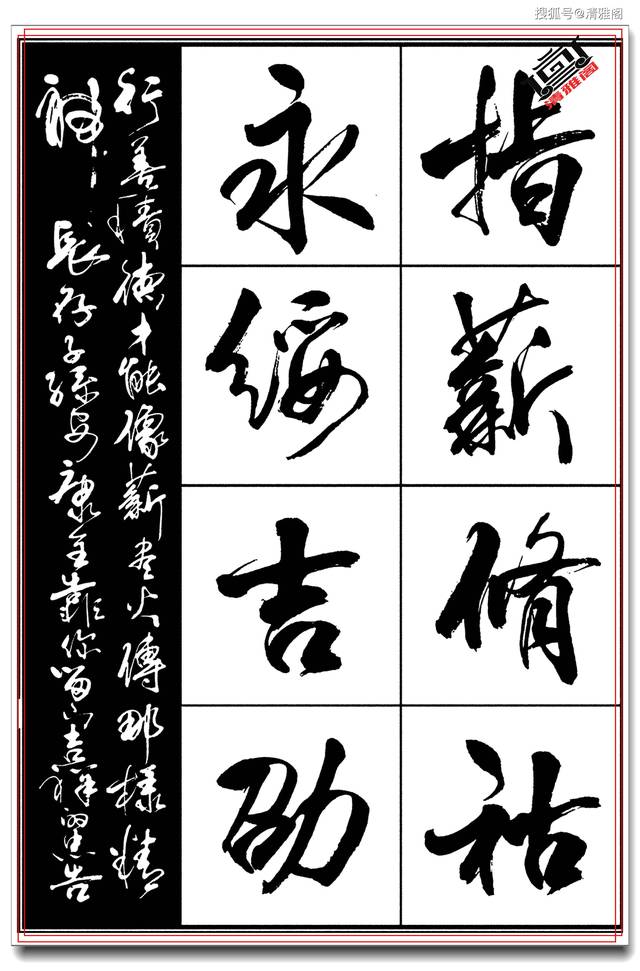 搜狐号@清雅阁
清雅阁
指薪脩祜
永綏吉劭
行善積德才能像薪盡火傳那樣精
神長存子孫安康全靠你留下吉祥的忠告